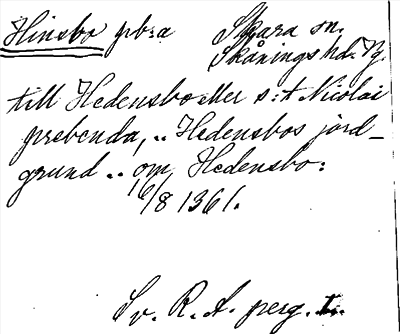 Hinsbo pb:a Skara sn.
Skånings hd. Vg.
till Hedensbo eller s:t Nicolai
prebenda, .. Hedensbos jord-
grund .. om Hedensbo:
16/8 1361.
Sv. R. A. perg.